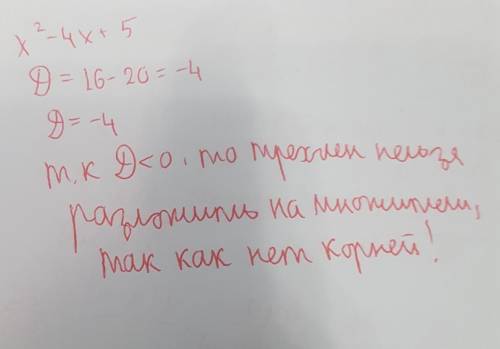 x² - 4x + 5
D = 16 - 20 = -4
D = -4
т.к D < 0, то трехлен нельзя
разложить на множители,
так как нет корней!